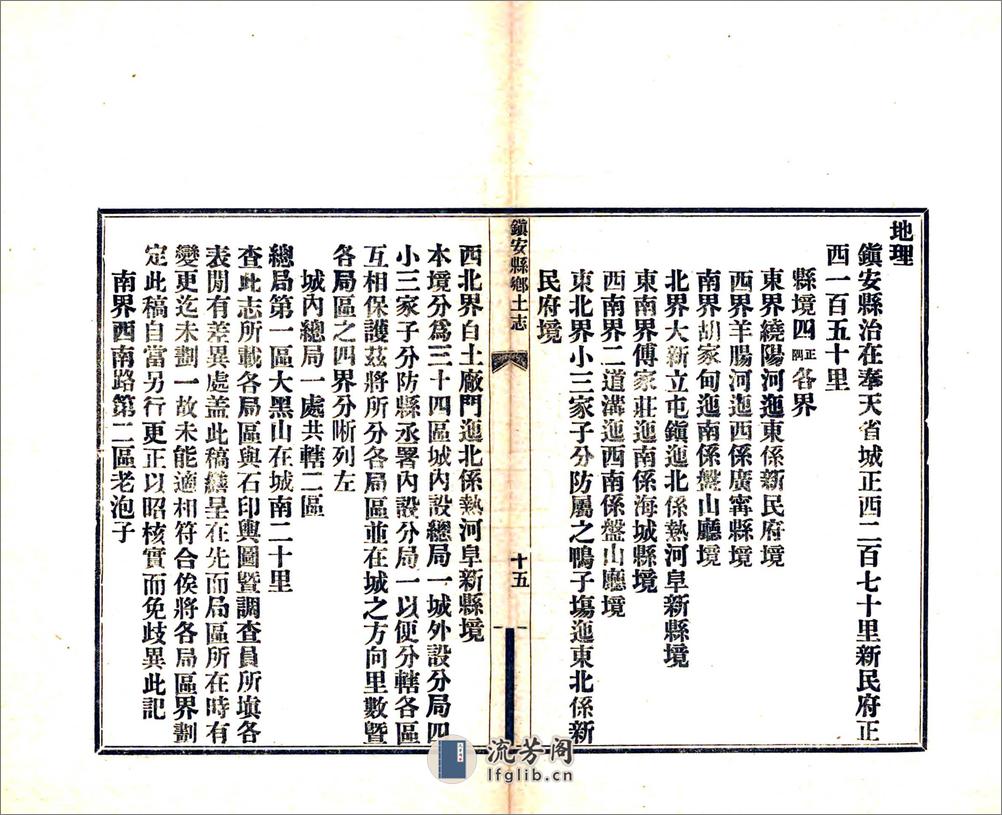 地理
鎭安縣治在奉天省城正西二百七十里新民府正
西一百五十里
縣境四正隅各界
東界繞陽河迤東係新民府境
西界羊腸河迤西係廣甯縣境
南界胡家甸迤南係盤山廳境
北界大新立屯鎭迤北係熱河阜新縣境
東南界傅家莊迤南係海城縣境
西南界二道溝迤西南係盤山廳境
東北界小三家子分防屬之鴨子塲迤東北係新
民府境
鎭安縣鄕土志
十五
西北界白土廠門迤北係熱河阜新縣境
本境分爲三十四區城内設總局一城外設分局四
小三家子分防縣丞署內設分局一以便分轄各區
互相保護茲將所分各局區並在城之方向里數曁
各局區之四界分晰列左
城內總局一處共轄二區
總局第一區大黑山在城南二十里
查此志所載各局區與石印輿圖曁調查員所塡各
表閒有差異處蓋此稿繕呈在先而局區所在時有
變更迄未劃一故未能適相符合俟將各局區界劃
定此稿自當另行更正以昭核實而免歧異此記
南界西南路第二區老泡子
流芳阁
lfglib.cn